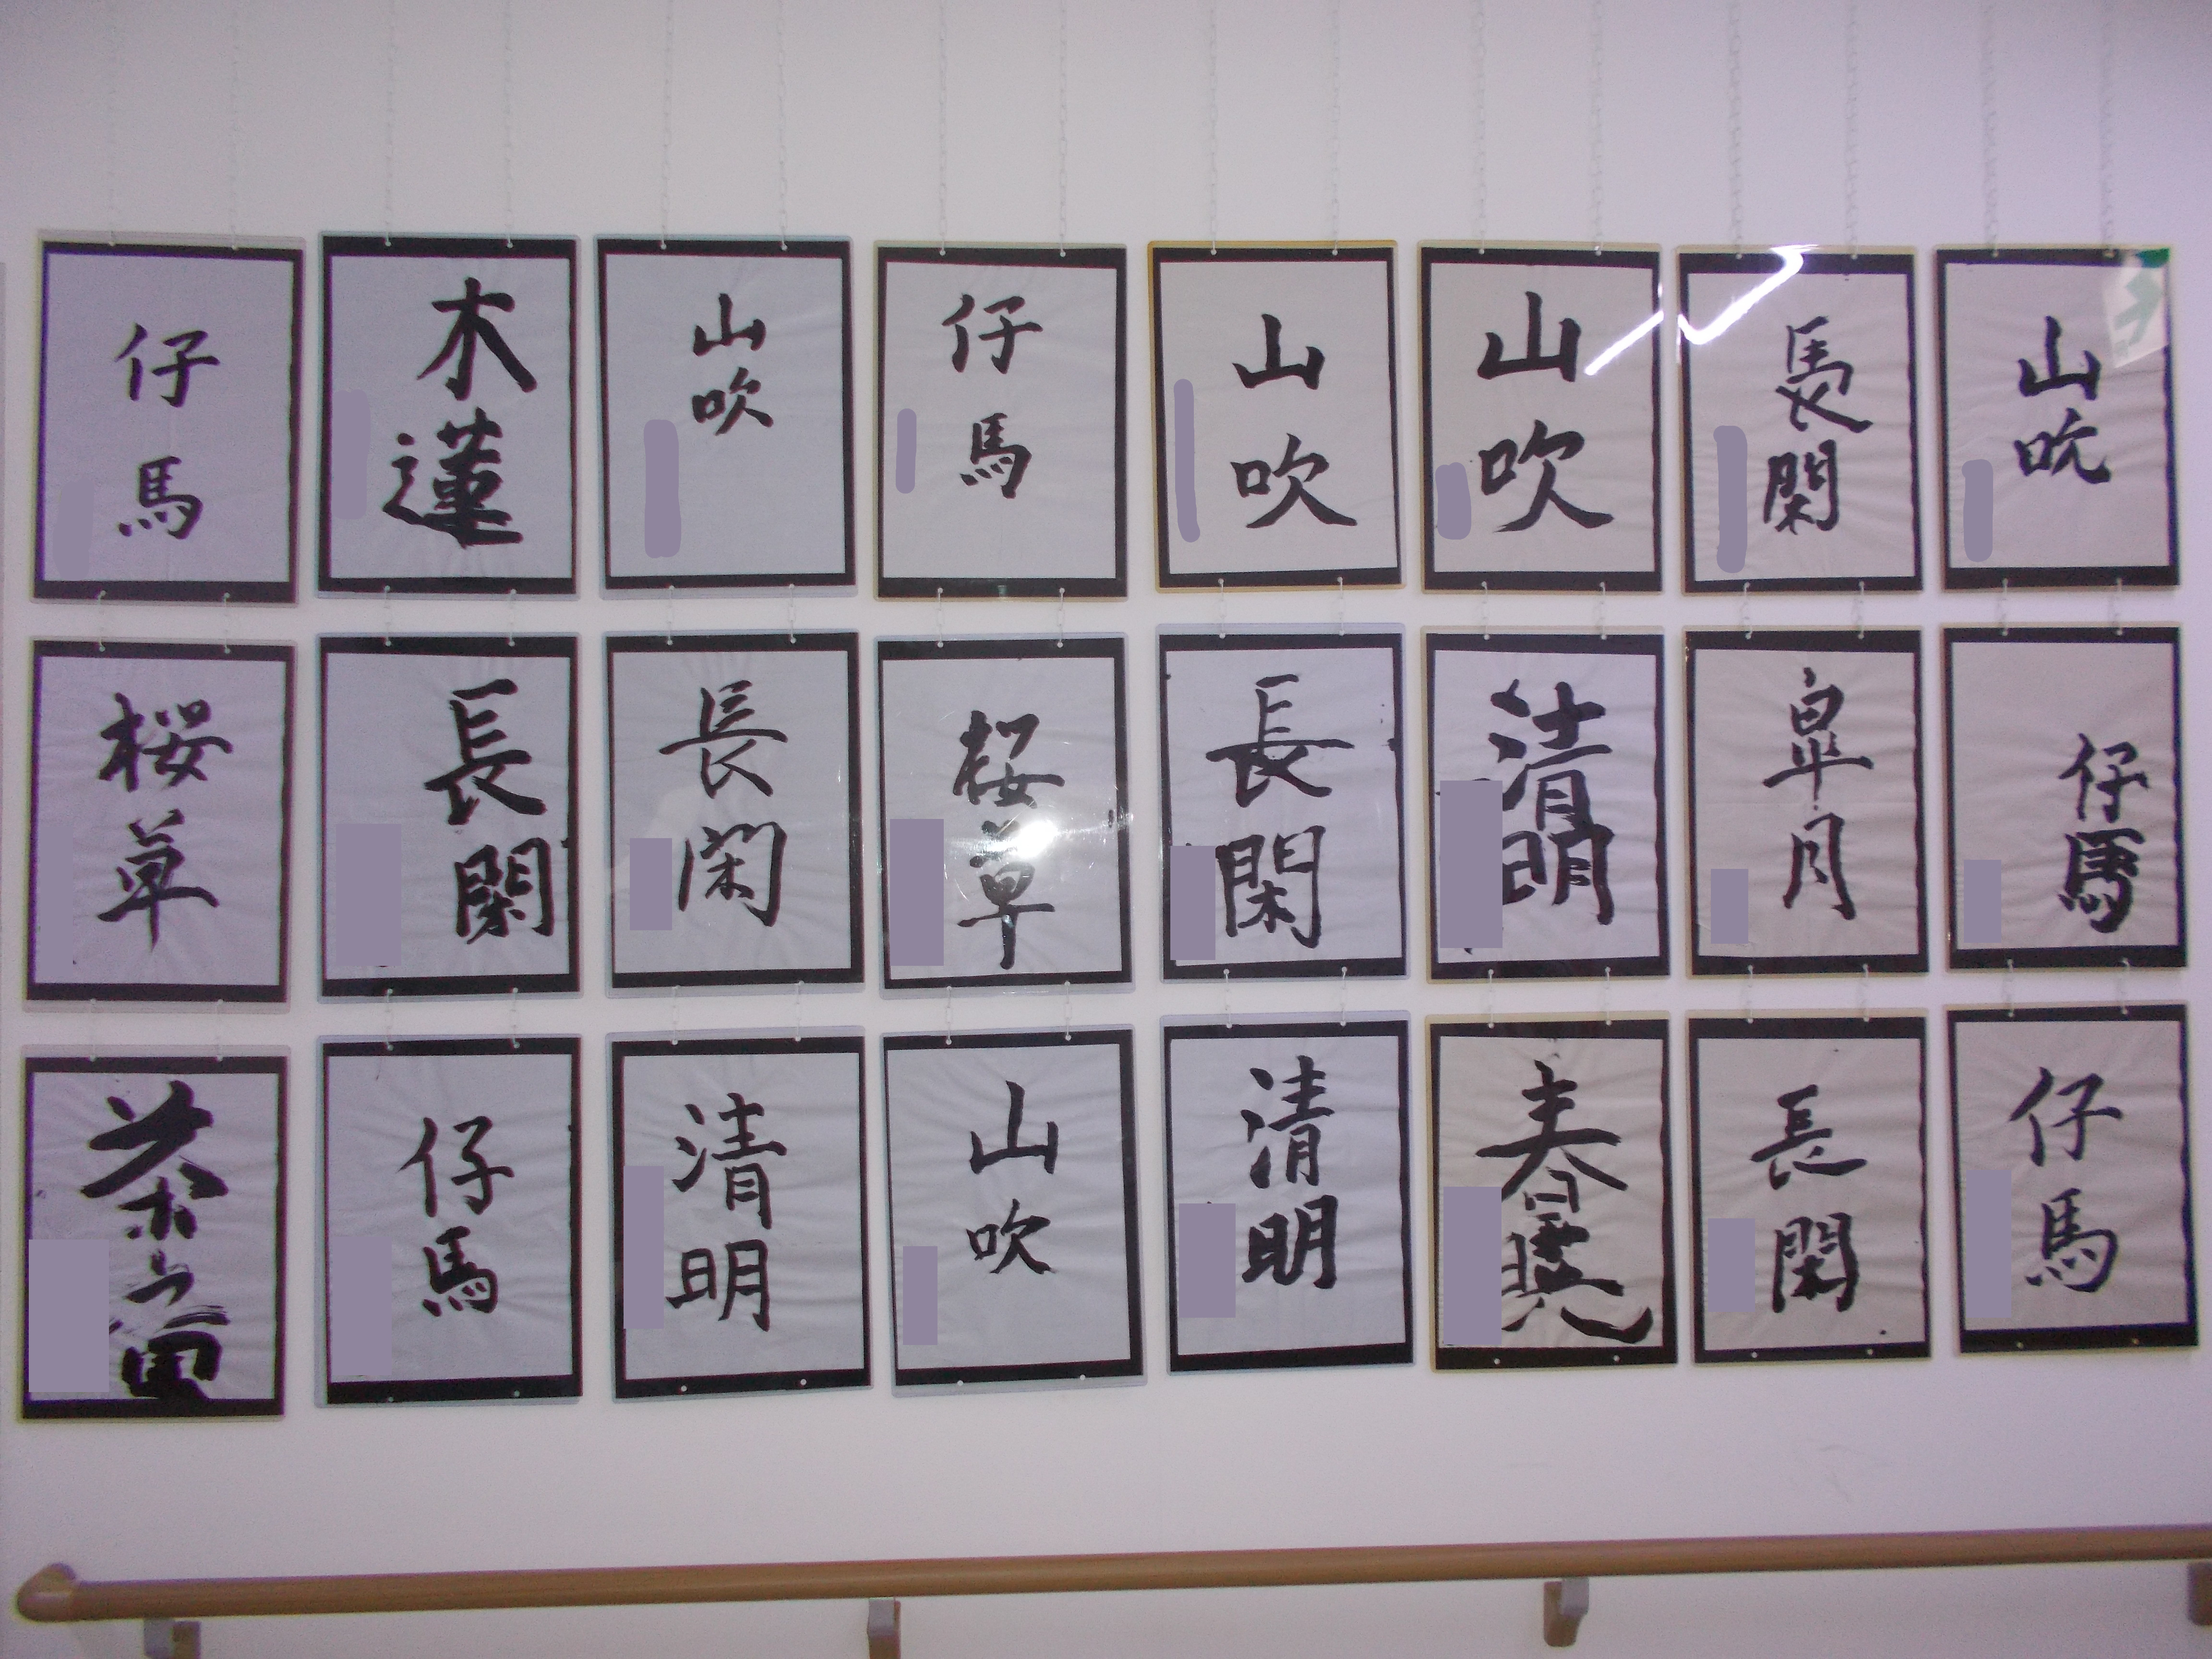 仔馬
木蓮
山吹
仔馬
山吹
山吹
長閑
山吹
桜草
長閑
長閑
桜草
長閑
清明
皐月
仔馬
仔馬
清明
山吹
清明
春暁
長閑
仔馬